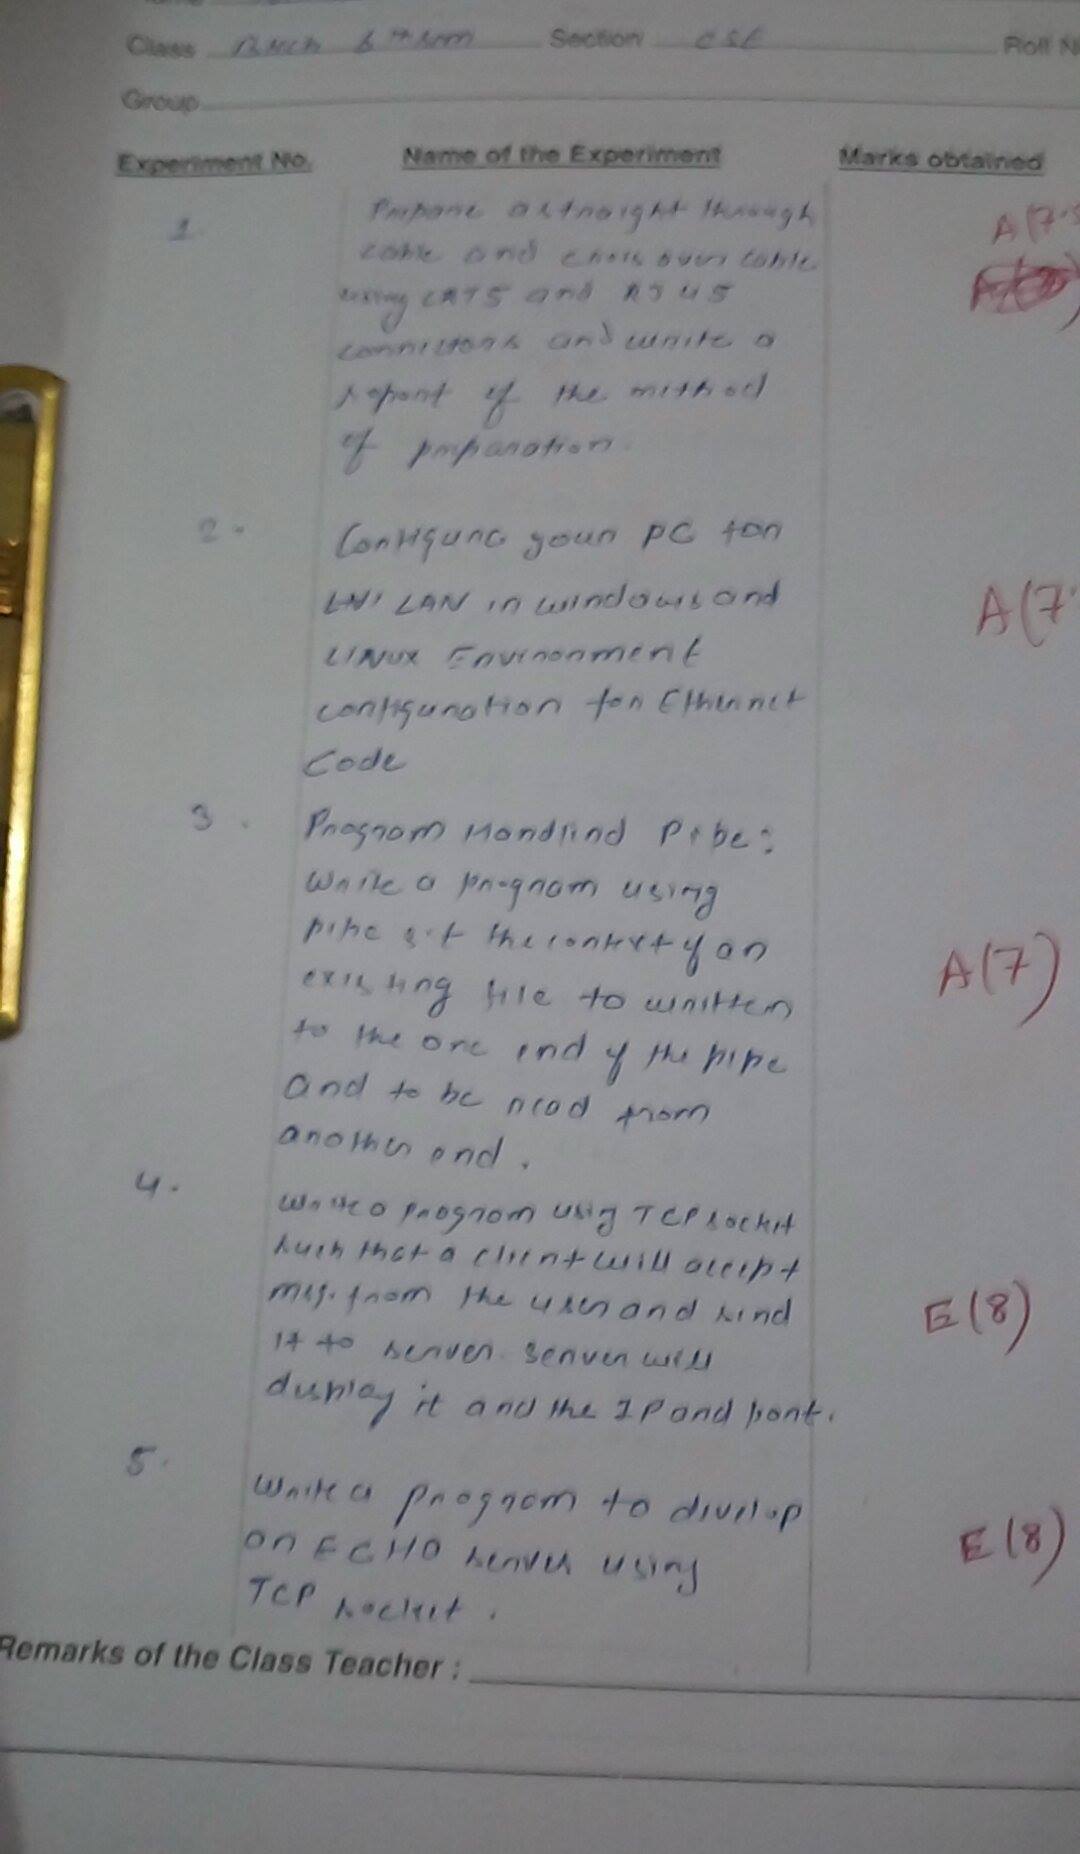 Class B.Tech 6th sem Section CSE Roll N
Group
Experiment No. Name of the Experiment Marks obtained
1 Prepare a straight through A(7.5
cable and cross over cable
using CAT5 and RJ45
connectors and write a
report of the method
of preparation.
2. Configure your PC for
LAN in windows and A(7.
LINUX Environment
configuration for Ethernet
Code
3. Program Handlind Pipe:
Write a program using
pipe s.t the content of an
existing file to written A(7)
to the one end of the pipe
and to be read from
another end.
4. Write a program using TCP socket
such that a client will accept
msg. from the user and send E(8)
it to server. Server will
display it and the IP and port.
5. Write a program to develop
on ECHO server using E(8)
TCP socket.
Remarks of the Class Teacher :